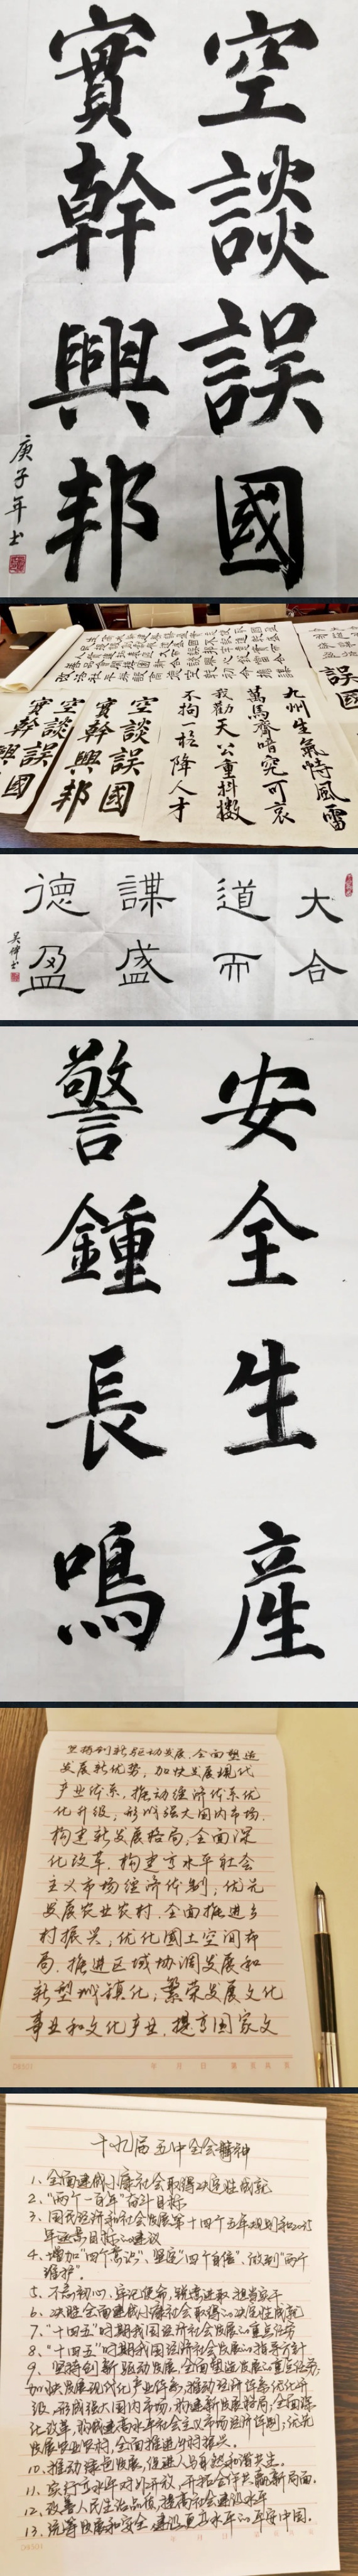 空談誤國
實幹興邦
庚子年士
九州生氣恃風雷
萬馬齊喑究可哀
我勸天公重抖擻
不拘一格降人才
空談誤國
實幹興邦
空談誤國
實幹興邦
誤國
大合
道而
謀盛
德盈
吴偉书
安全生産
警鍾長鳴
坚持创新驱动发展,全面塑造
发展新优势,加快发展现代
产业体系,推动经济体系优
化升级,形成强大国内市场,
构建新发展格局,全面深
化改革,构建高水平社会
主义市场经济体制,优先
发展农业农村,全面推进乡
村振兴,优化国土空间布
局,推进区域协调发展和
新型城镇化,繁荣发展文化
事业和文化产业,提高国家文
十九届五中全会精神
1、全面建成小康社会取得决定性成就
2、"两个一百年"奋斗目标
3、国民经济和社会发展第十四个五年规划和2035
年远景目标的建议
4、增加"四个意识"、坚定"四个自信"、做到"两个
维护"。
5、不忘初心、牢记使命,锐意进取,担当实干
6、决胜全面建成小康社会取得的决定性成就
7、"十四五"时期我国经济社会发展的重点任务
8、"十四五"时期我国经济社会发展的指导方针
9、坚持创新驱动发展,全面塑造发展的重点任务,
加快发展现代化产业体系,推动经济体系优化升
级,形成强大国内市场,构建新发展格局,全面深
化改革,构建高水平社会主义市场经济体制,优先
发展农业农村,全面推进乡村振兴。
10、推动绿色发展,促进人与自然和谐共生。
11、实行高水平对外开放,开拓合作共赢新局面。
12、改善人民生活品质,提高社会建设水平
13、统筹发展和安全,建设更高水平的平安中国。